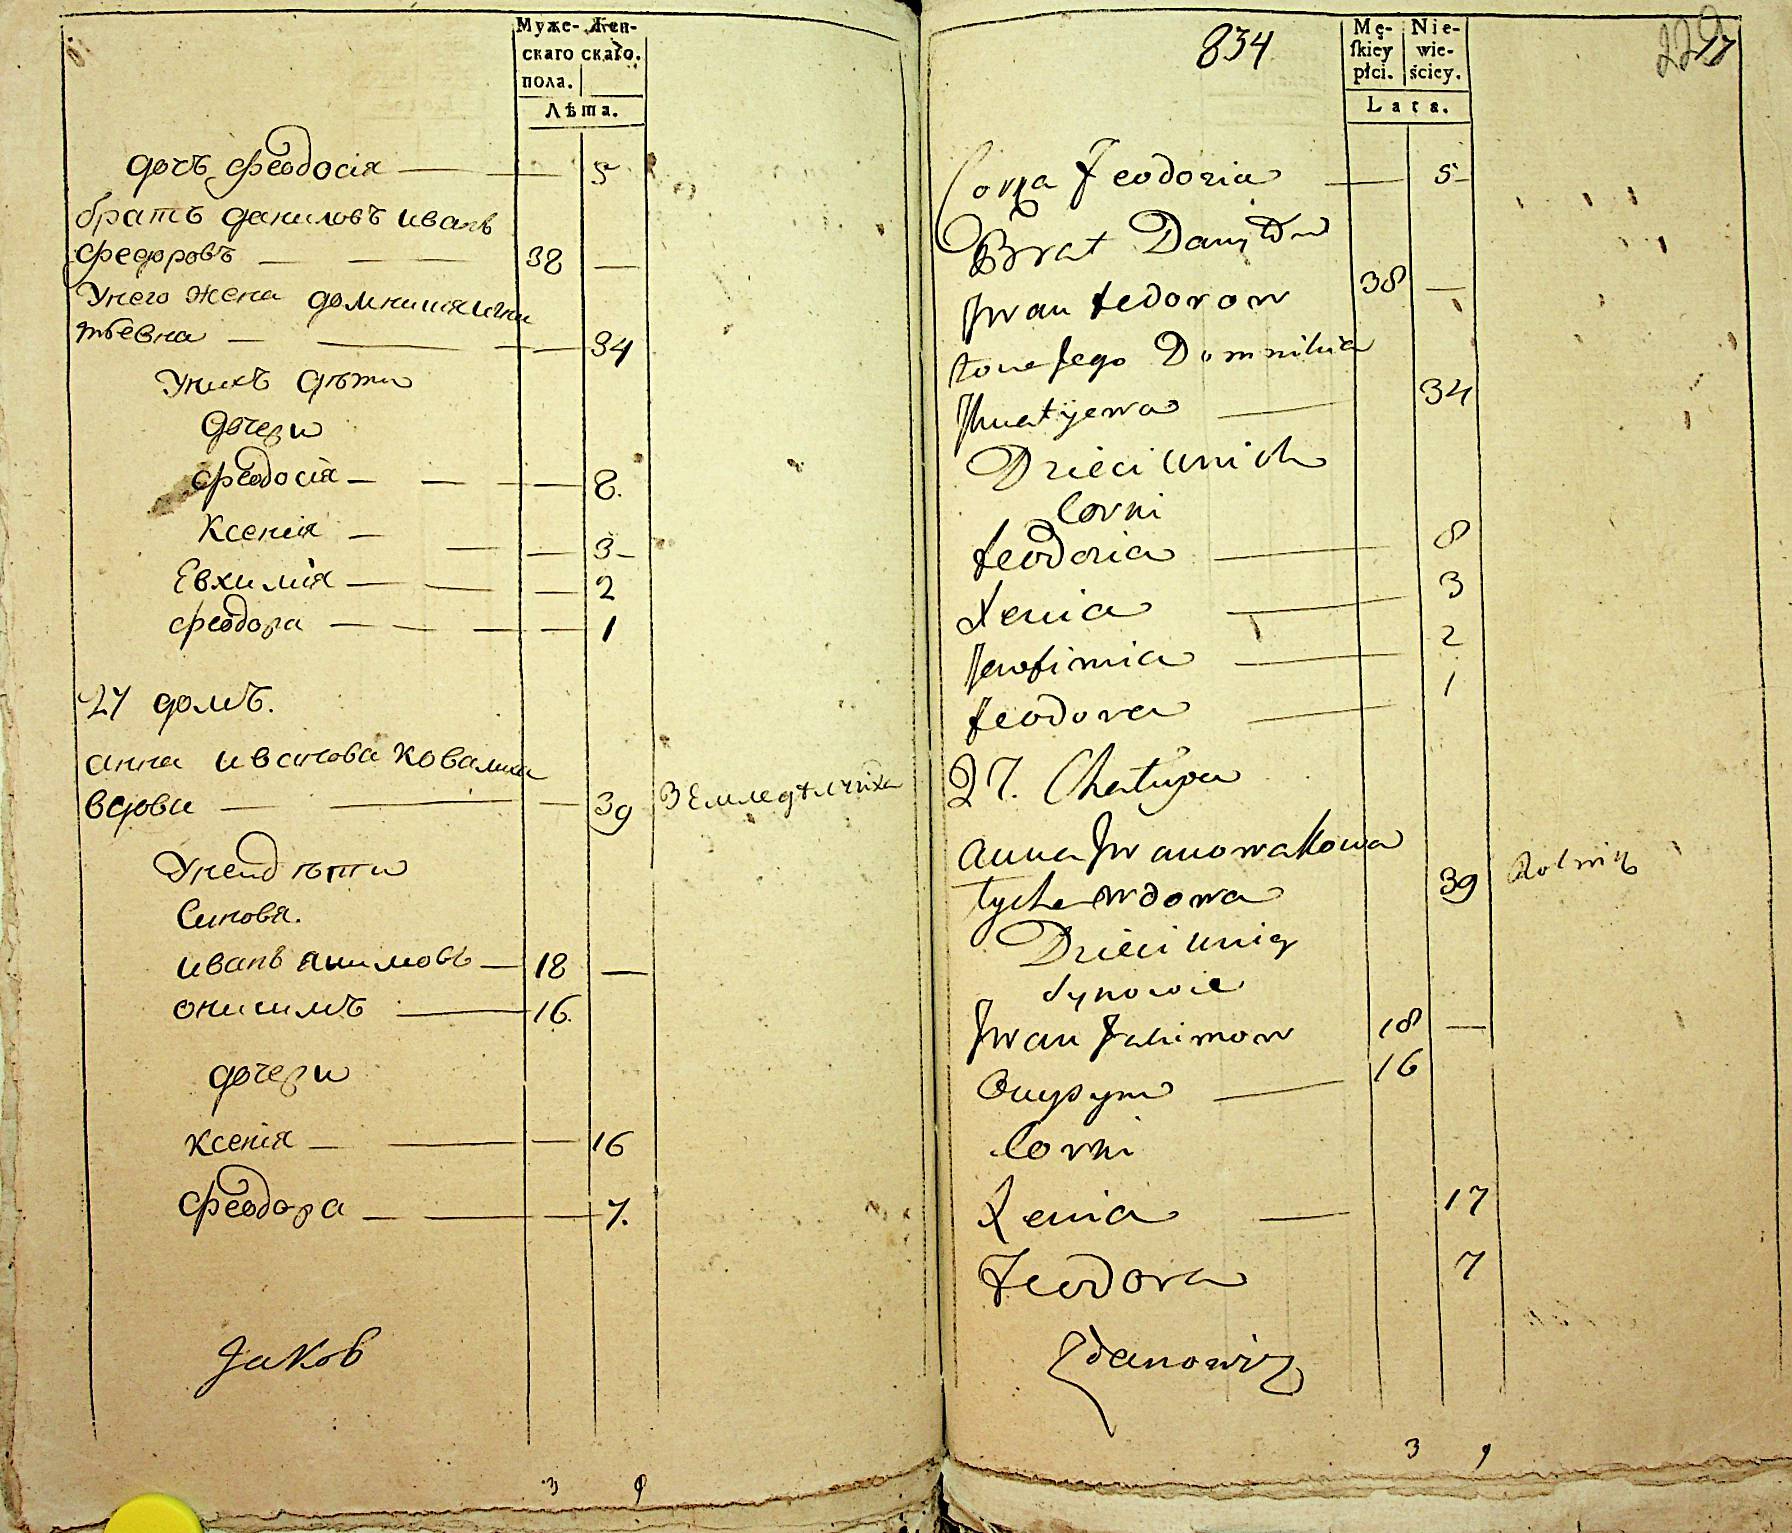 Муже- Жен-
скаго скаго.
пола.
Лѣта.
дочъ феодосія — — 5
братъ даниловъ иванъ
федоровъ — — — 38 —
Унего жена домникия игна
тьевна — — — 34
Унихъ дѣти
дочери
феодосія — — — 8.
Ксенія — — — 3 —
Евхимія — — — 2
феодора — — — 1
27 домъ.
анна иванова Ковалиха
вдова — — — 39 Земледѣлчиха
Унейдѣти
Синовя.
иванъ якимовъ — 18 —
онисимъ — 16.
дочери
ксенія — — — 16
феодора — — — 7.
Jakob
3 9
834
Mę- Nie-
skiey wie-
płci. ściey.
Lata.
17
Corka Feodozia — 5
Brat Daniłow
Jwan Fedorow 38 —
żona Jego Domnikia
Jhnatijewa — 34
Dzieci unich
Corki
Feodozia — 8
Xenia — 3
Jewfimia — 2
Feodora — 1
27. Chałupa
Anna Jwanowa Kowa
lycha wdowa 39 Rolnicz
Dzieci uniey
Synowie
Jwan Jakimow 18 —
Onysym — 16
Corki
Xenia — 17
Feodora 7
Zdanowicz
3 9